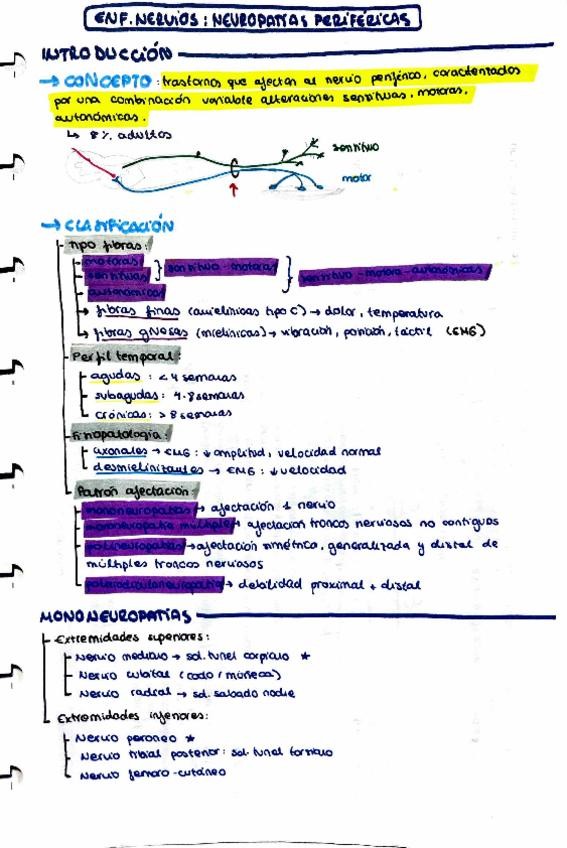 ENF. NERVIOS: NEUROPATÍAS PERIFÉRICAS
INTRODUCCIÓN
→ CONCEPTO: trastornos que afectan al nervio periférico, caracterizados
por una combinación variable alteraciones sensitivas, motoras,
autonómicas.
↳ 8% adultos
sensitivo
motor
→ CLASIFICACIÓN
Tipo fibras:
motoras
sensitivas } sensitivo-motoras } sensitivo-motora-autonómicas
autonómicas
fibras finas (amielínicas tipo C) → dolor, temperatura
fibras gruesas (mielínicas) → vibración, posición, táctil (EMG)
Perfil temporal:
agudas: < 4 semanas
subagudas: 4-8 semanas
crónicas: > 8 semanas
Fisiopatología:
axonales → EMG: ↓ amplitud, velocidad normal
desmielinizantes → EMG: ↓ velocidad
Patrón afectación:
mononeuropatías → afectación 1 nervio
mononeuropatía múltiple → afectación troncos nerviosos no contiguos
polineuropatías → afectación simétrica, generalizada y distal de
múltiples troncos nerviosos
polirradiculoneuropatía → debilidad proximal + distal
MONONEUROPATÍAS
Extremidades superiores:
Nervio mediano → sd. tunel carpiano ★
Nervio cubital (codo / muñeca)
Nervio radial → sd. sabado noche
Extremidades inferiores:
Nervio peroneo ★
Nervio tibial posterior: sd. tunel tarsiano
Nervio femoro-cutáneo